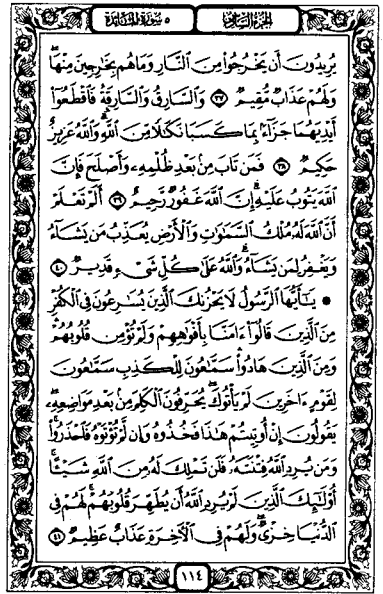 الجزء السادس ٥ سورة المائدة
يُرِيدُونَ أَن يَخْرُجُوا۟ مِنَ ٱلنَّارِ وَمَا هُم بِخَٰرِجِينَ مِنْهَا ۖ
وَلَهُمْ عَذَابٌ مُّقِيمٌ ﴿٣٧﴾ وَٱلسَّارِقُ وَٱلسَّارِقَةُ فَٱقْطَعُوٓا۟
أَيْدِيَهُمَا جَزَآءًۢ بِمَا كَسَبَا نَكَٰلًا مِّنَ ٱللَّهِ ۗ وَٱللَّهُ عَزِيزٌ
حَكِيمٌ ﴿٣٨﴾ فَمَن تَابَ مِنۢ بَعْدِ ظُلْمِهِۦ وَأَصْلَحَ فَإِنَّ
ٱللَّهَ يَتُوبُ عَلَيْهِ ۗ إِنَّ ٱللَّهَ غَفُورٌ رَّحِيمٌ ﴿٣٩﴾ أَلَمْ تَعْلَمْ
أَنَّ ٱللَّهَ لَهُۥ مُلْكُ ٱلسَّمَٰوَٰتِ وَٱلْأَرْضِ يُعَذِّبُ مَن يَشَآءُ
وَيَغْفِرُ لِمَن يَشَآءُ ۗ وَٱللَّهُ عَلَىٰ كُلِّ شَىْءٍ قَدِيرٌ ﴿٤٠﴾
۞ يَٰٓأَيُّهَا ٱلرَّسُولُ لَا يَحْزُنكَ ٱلَّذِينَ يُسَٰرِعُونَ فِى ٱلْكُفْرِ
مِنَ ٱلَّذِينَ قَالُوٓا۟ ءَامَنَّا بِأَفْوَٰهِهِمْ وَلَمْ تُؤْمِن قُلُوبُهُمْ ۛ
وَمِنَ ٱلَّذِينَ هَادُوا۟ ۛ سَمَّٰعُونَ لِلْكَذِبِ سَمَّٰعُونَ
لِقَوْمٍ ءَاخَرِينَ لَمْ يَأْتُوكَ ۖ يُحَرِّفُونَ ٱلْكَلِمَ مِنۢ بَعْدِ مَوَاضِعِهِۦ ۖ
يَقُولُونَ إِنْ أُوتِيتُمْ هَٰذَا فَخُذُوهُ وَإِن لَّمْ تُؤْتَوْهُ فَٱحْذَرُوا۟ ۚ
وَمَن يُرِدِ ٱللَّهُ فِتْنَتَهُۥ فَلَن تَمْلِكَ لَهُۥ مِنَ ٱللَّهِ شَيْـًٔا ۚ
أُو۟لَٰٓئِكَ ٱلَّذِينَ لَمْ يُرِدِ ٱللَّهُ أَن يُطَهِّرَ قُلُوبَهُمْ ۚ لَهُمْ فِى
ٱلدُّنْيَا خِزْىٌ ۖ وَلَهُمْ فِى ٱلْءَاخِرَةِ عَذَابٌ عَظِيمٌ ﴿٤١﴾
١١٤